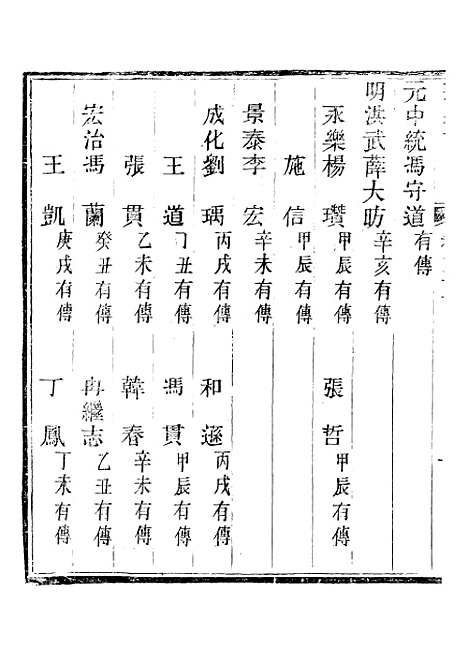 元中統馮守道有傳
明洪武薛大昉辛亥有傳
永樂楊瓚甲辰有傳 張哲甲辰有傳
施信甲辰有傳
景泰李宏辛未有傳
成化劉瑀丙戌有傳 和遜丙戌有傳
王道丁丑有傳 馮貫甲辰有傳
張貫乙未有傳 韓春辛未有傳
宏治馮蘭癸丑有傳 冉繼志乙丑有傳
王凱庚戌有傳 丁鳳丁未有傳